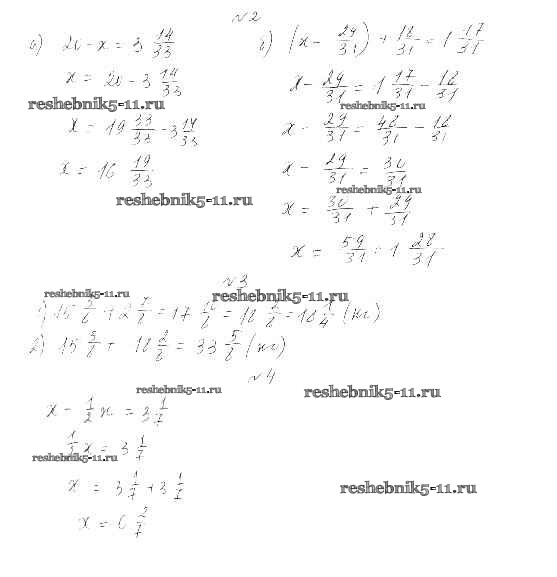 №2
а) 20 - x = 3 14/33
x = 20 - 3 14/33
resheebnik5-11.ru
x = 19 33/33 - 3 14/33
x = 16 19/33
reshebnik5-11.ru
б) (x - 29/31) + 18/31 = 1 17/31
x - 29/31 = 1 17/31 - 18/31
reshebnik5-11.ru
x - 29/31 = 48/31 - 18/31
x - 29/31 = 30/31
reshebnik5-11.ru
x = 30/31 + 29/31
x = 59/31 = 1 28/31
№3
reshebnik5-11.ru
reshebnik5-11.ru
2) 15 5/8 + 18 2/8 = 33 5/8 (кг)
№4
reshebnik5-11.ru
reshebnik5-11.ru
x - 1/2 x = 3 1/7
1/2 x = 3 1/7
reshebnik5-11.ru
x = 3 1/7 + 3 1/7
reshebnik5-11.ru
x = 6 2/7